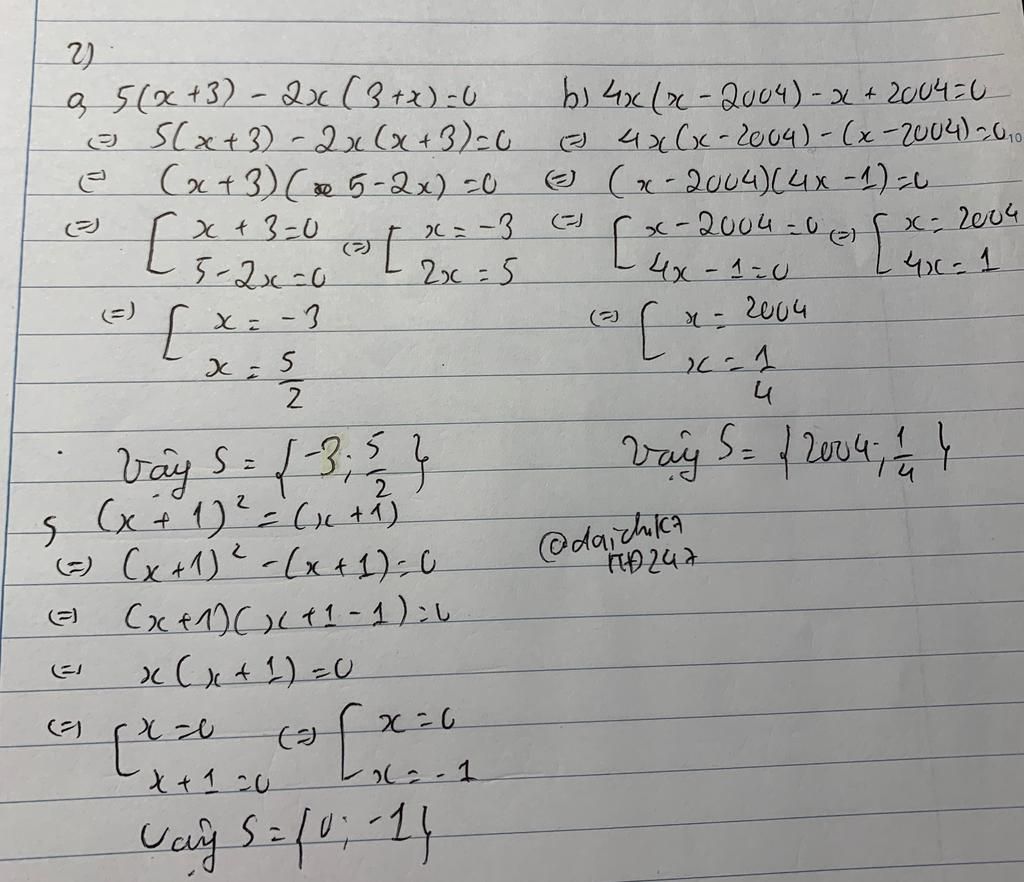 2)
a, 5(x+3) - 2x(3+x)=0
(=) 5(x+3) - 2x(x+3)=0
(=) (x+3)(5-2x)=0
(=) [ x+3=0 (=) [ x=-3
5-2x=0 2x=5
(=) [ x=-3
x=5/2
Vậy S={-3; 5/2}
b) 4x(x-2004)-x+2004=0
(=) 4x(x-2004)-(x-2004)=0
(=) (x-2004)(4x-1)=0
(=) [ x-2004=0 (=) [ x=2004
4x-1=0 4x=1
(=) [ x=2004
x=1/4
Vậy S={2004; 1/4}
c, (x+1)²=(x+1)
(=) (x+1)²-(x+1)=0
(=) (x+1)(x+1-1)=0
(=) x(x+1)=0
(=) [ x=0 (=) [ x=0
x+1=0 x=-1
Vậy S={0; -1}